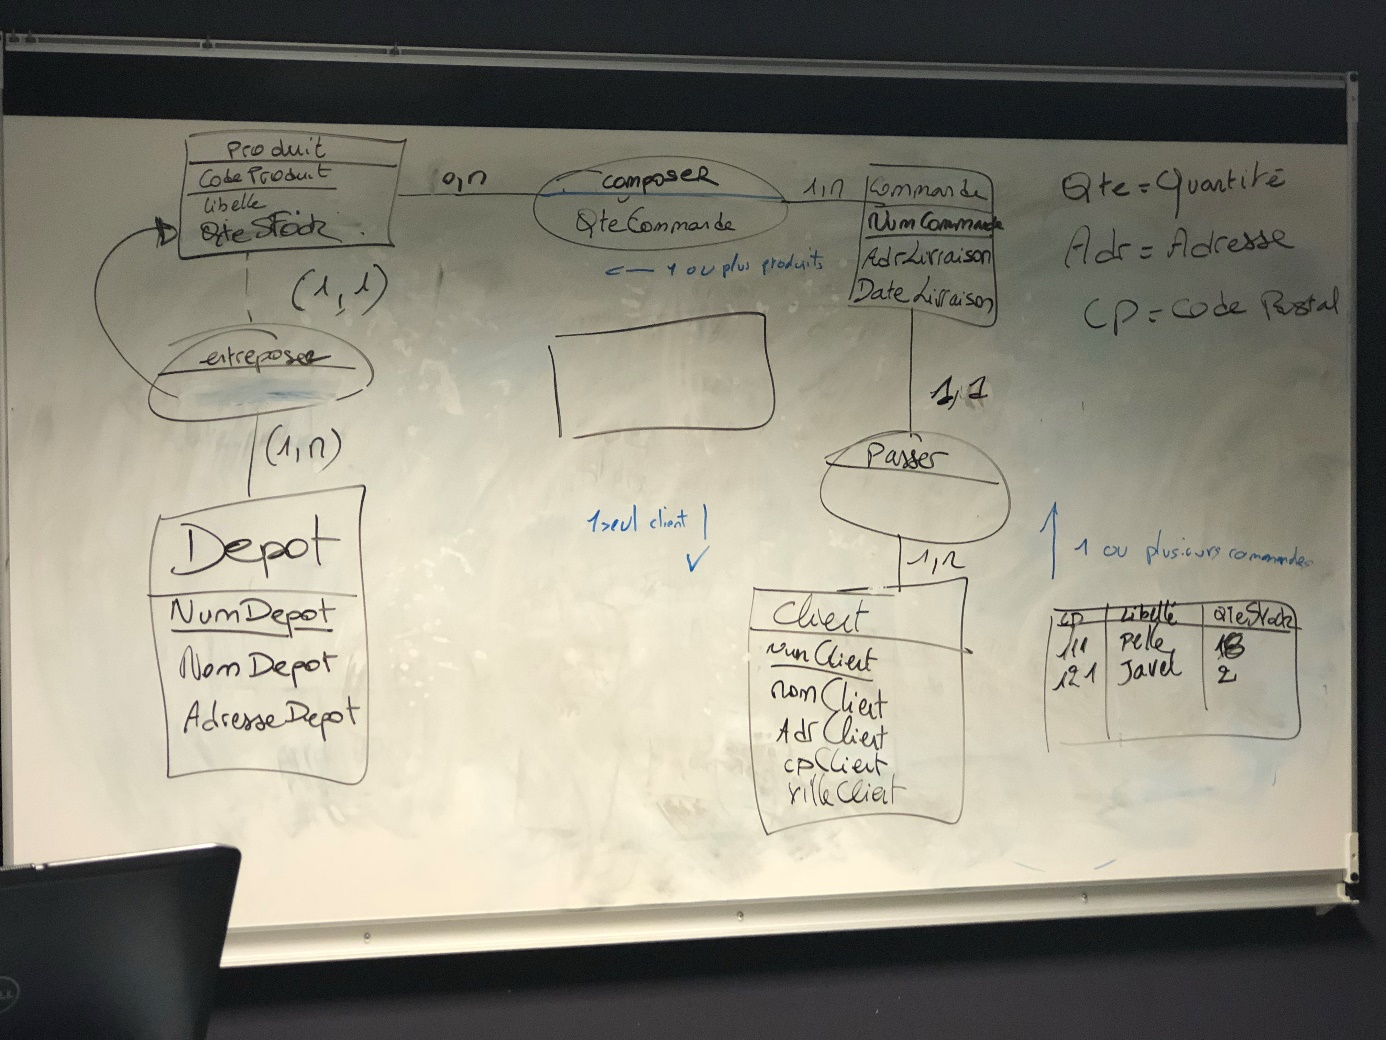 Produit
CodeProduit
Libelle
QteStock
0,n
composer
QteCommande
1,n
Commande
NumCommande
AdrLivraison
DateLivraison
Qte = Quantité
Adr = Adresse
CP = Code Postal
<— 1 ou plus produits
(1,1)
entreposer
(1,n)
Depot
NumDepot
NomDepot
AdresseDepot
1,1
Passer
1,n
1 seul client
1 ou plusieurs commandes
Client
numClient
nomClient
AdrClient
cpClient
villeClient
CP Libellé QteStock
111 Pelle
121 Javel 2